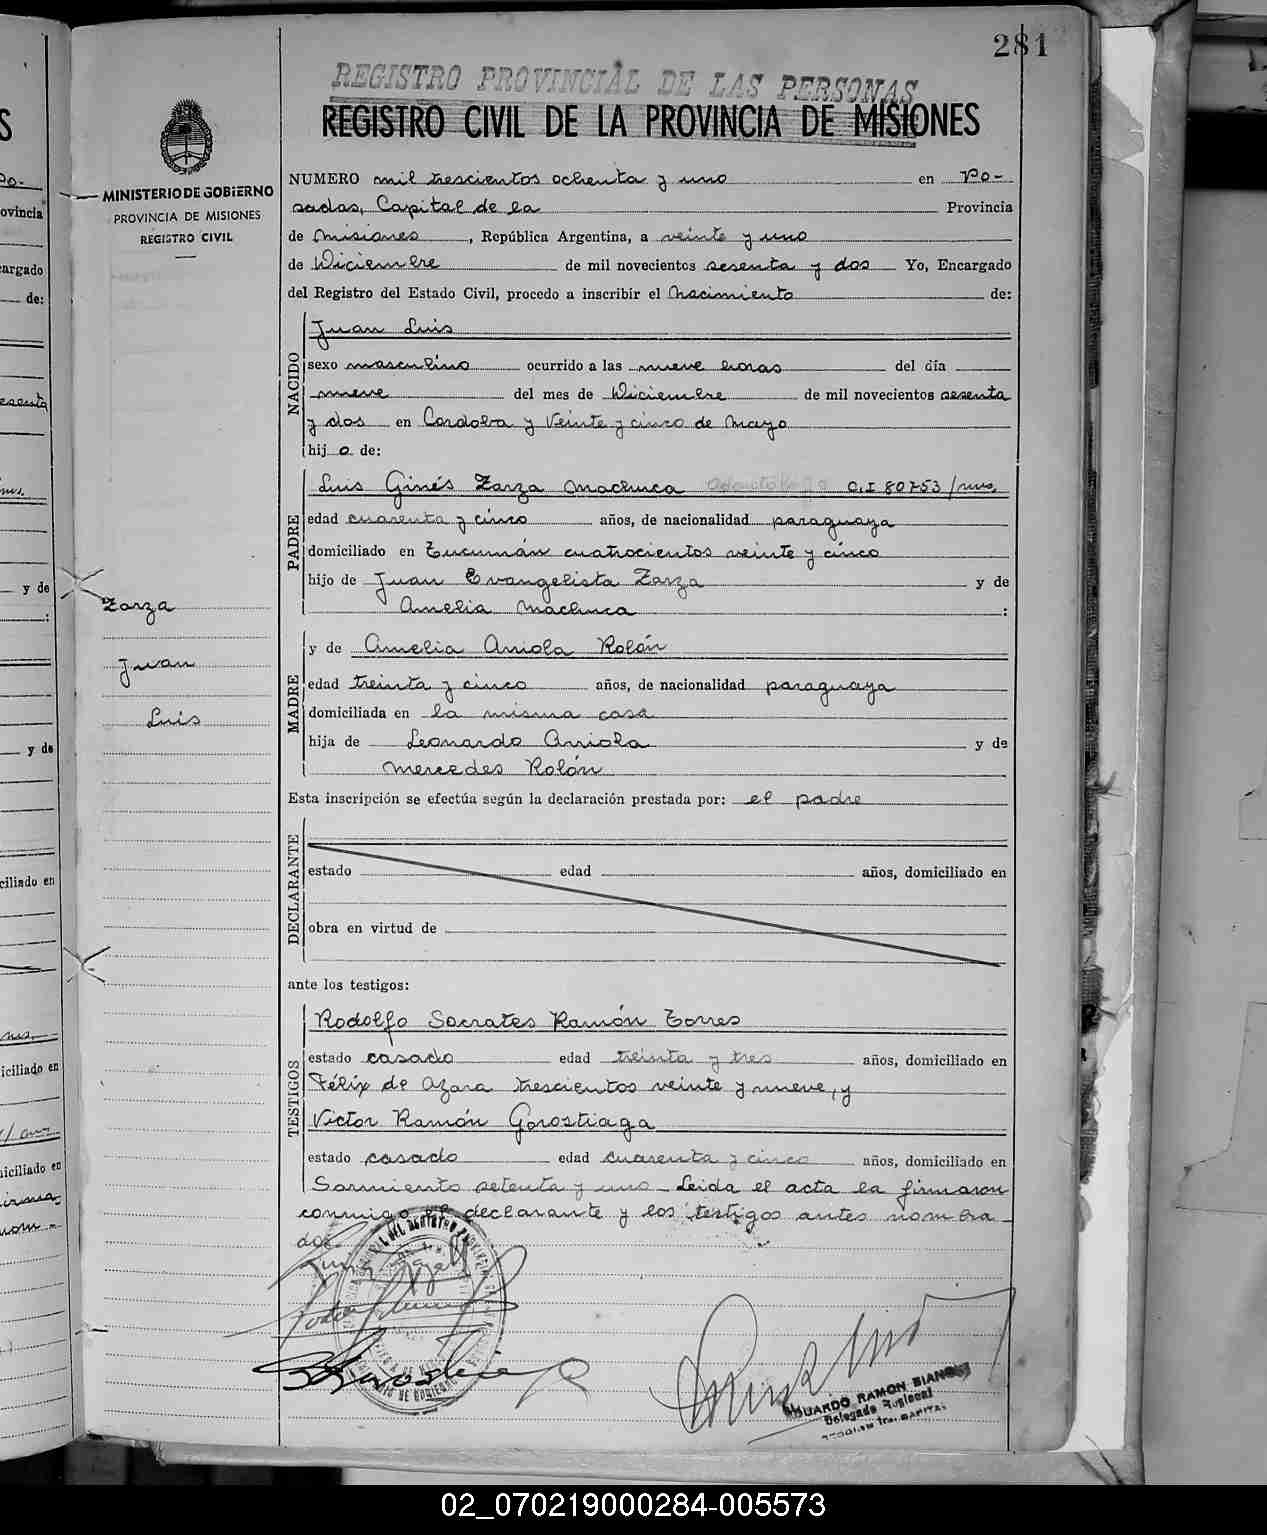 281
REGISTRO PROVINCIAL DE LAS PERSONAS
REGISTRO CIVIL DE LA PROVINCIA DE MISIONES
MINISTERIO DE GOBIERNO
PROVINCIA DE MISIONES
REGISTRO CIVIL
NUMERO mil trescientos ochenta y uno en Po-
sadas, Capital de la Provincia
de Misiones, República Argentina, a veinte y uno
de Diciembre de mil novecientos sesenta y dos Yo, Encargado
del Registro del Estado Civil, procedo a inscribir el Nacimiento de:
NACIDO
Juan Luis
sexo masculino ocurrido a las nueve horas del día
nueve del mes de Diciembre de mil novecientos sesenta
y dos en Cordoba y Veinte y cinco de Mayo
hijo de:
PADRE
Luis Ginés Zarza Machuca C.I 80753/mns.
edad cuarenta y cinco años, de nacionalidad paraguaya
domiciliado en Tucumán cuatrocientos veinte y cinco
hijo de Juan Evangelista Zarza y de
Amelia Machuca :
Zarza
Juan
Luis
MADRE
y de Amelia Arriola Rolón
edad treinta y cinco años, de nacionalidad paraguaya
domiciliada en la misma casa
hija de Leonardo Arriola y de
Mercedes Rolón
Esta inscripción se efectúa según la declaración prestada por: el padre
DECLARANTE
estado edad años, domiciliado en
obra en virtud de
ante los testigos:
TESTIGOS
Rodolfo Socrates Ramón Torres
estado casado edad treinta y tres años, domiciliado en
Félix de Azara trescientos veinte y nueve, y
Victor Ramón Gorostiaga
estado casado edad cuarenta y cinco años, domiciliado en
Sarmiento setenta y uno_ Leida el acta la firmaron
conmigo el declarante y los testigos antes nombra_
dos
EDUARDO RAMON BIANCHI
Delegado Regional
02_070219000284-005573